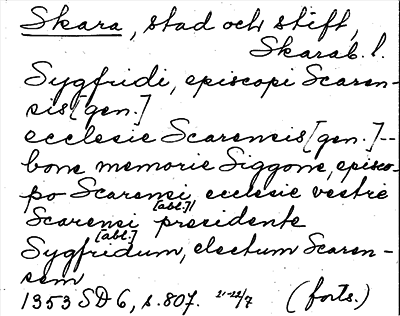 Skara, stad och stift,
Skarab. l.
Sygfridi, episcopi Scaren-
sis [gen.]
ecclesie Scarensis [gen.] --
bone memorie Siggone, episco-
po Scarensi, ecclesie vestre
Scarensi [abl.] presidente
Sygfridum, [abl.] electum Scaren-
sem
1353 SD 6, s. 807. 21-22/7 (forts.)